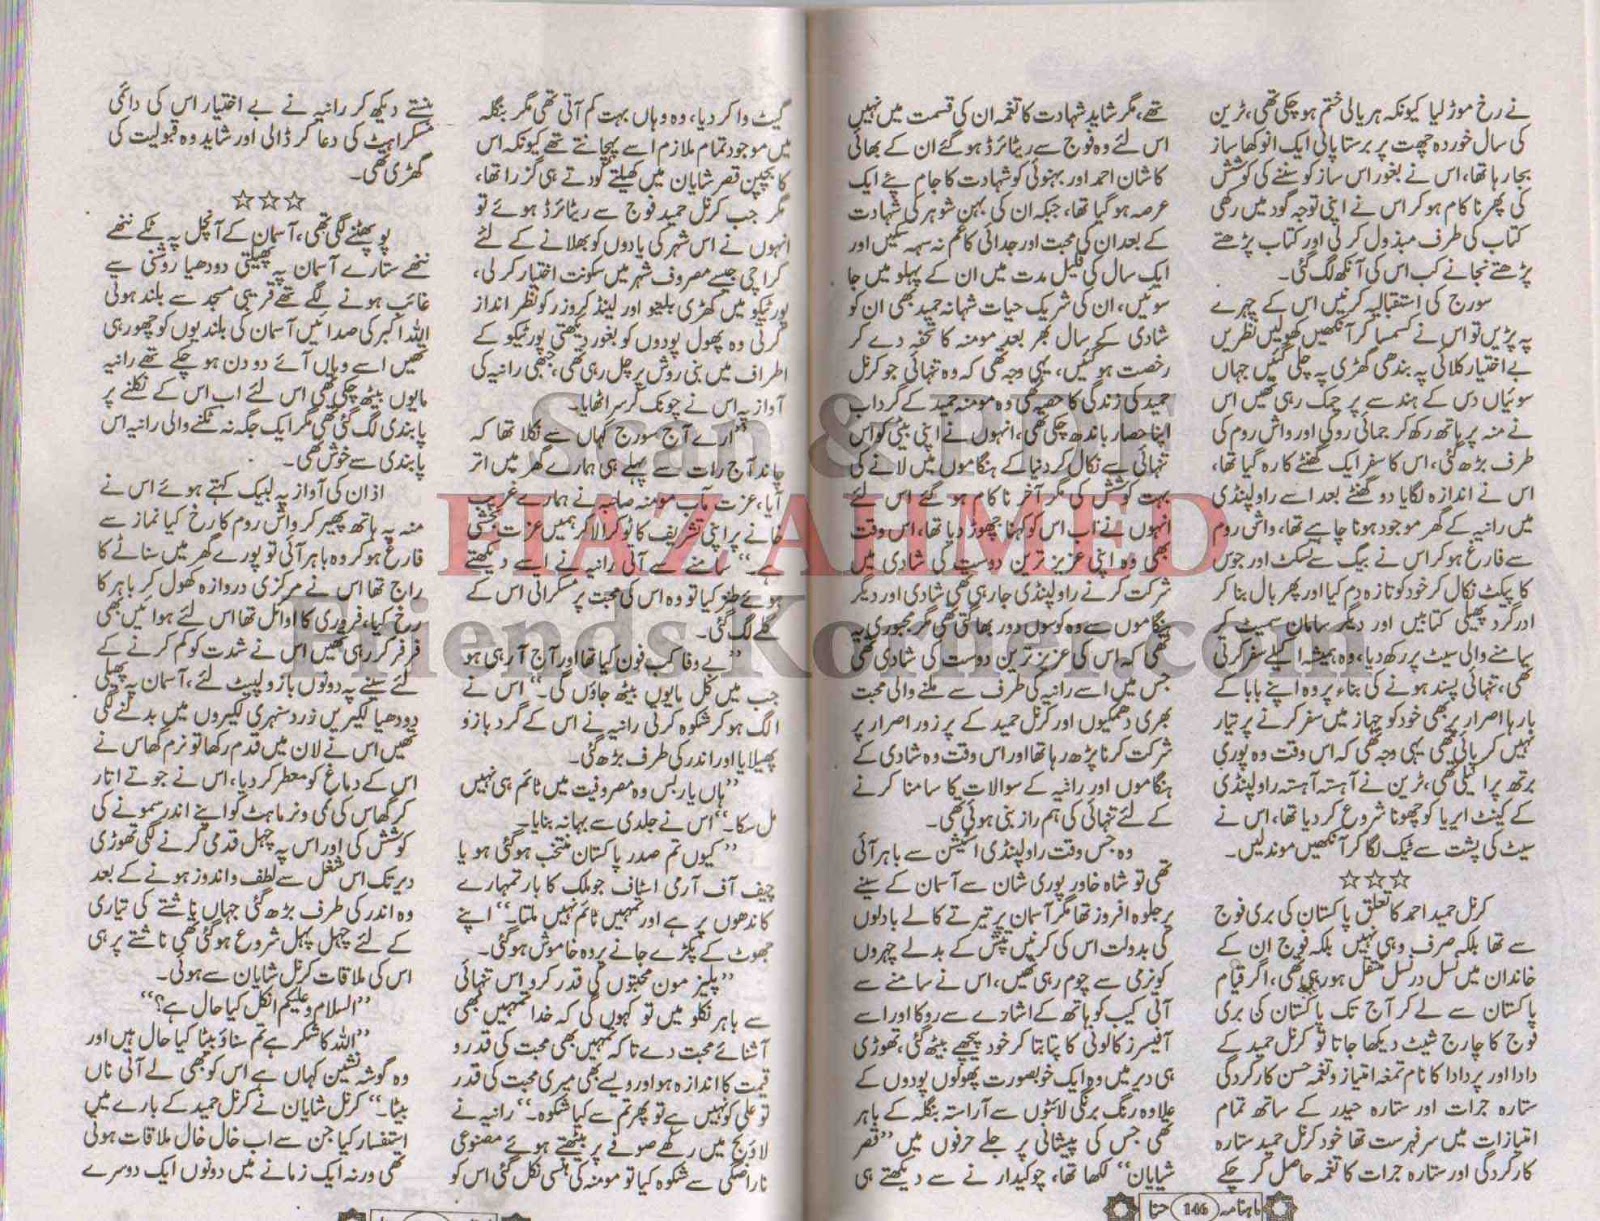 نے رخ موڑ لیا کیونکہ ہریالی ختم ہو چکی تھی، ٹرین
کی سال خوردہ چھت پر برستا پانی ایک انوکھا ساز
بجا رہا تھا، اس نے بغور اس ساز کو سننے کی کوشش
کی پھر ناکام ہو کر اس نے اپنی توجہ گود میں رکھی
کتاب کی طرف مبذول کر لی اور کتاب پڑھتے
پڑھتے نجانے کب اس کی آنکھ لگ گئی۔
سورج کی استقبالیہ کرنیں اس کے چہرے
پہ پڑیں تو اس نے کسمسا کر آنکھیں کھولیں نظریں
بے اختیار کلائی پہ بندھی گھڑی پہ چلی گئیں جہاں
سوئیاں دس کے ہندسے پر چمک رہی تھیں اس
نے منہ پر ہاتھ رکھ کر جمائی روکی اور واش روم کی
طرف بڑھ گئی، اس کا سفر ایک گھنٹے کا رہ گیا تھا،
اس نے اندازہ لگایا دو گھنٹے بعد اسے راولپنڈی
میں رانیہ کے گھر موجود ہونا چاہیے تھا، واش روم
سے فارغ ہو کر اس نے بیگ سے بسکٹ اور جوس
کا پیکٹ نکال کر خود کو تازہ دم کیا اور پھر بال بنا کر
ادرگرد پھیلی کتابیں اور دیگر سامان سمیٹ کر
سامنے والی سیٹ پر رکھ دیا، وہ ہمیشہ اکیلے سفر کرتی
تھی، تنہائی پسند ہونے کی بناء پر وہ اپنے بابا کے
بارہا اصرار پر بھی خود کو جہاز میں سفر کرنے پر تیار
نہیں کر پائی تھی یہی وجہ تھی کہ اس وقت وہ پوری
برتھ پر اکیلی تھی، ٹرین نے آہستہ آہستہ راولپنڈی
کے کینٹ ایریا کو چھونا شروع کر دیا تھا، اس نے
سیٹ کی پشت سے ٹیک لگا کر آنکھیں موندلیں۔
☆☆☆
کرنل حمید احمد کا تعلق پاکستان کی بری فوج
سے تھا بلکہ صرف وہی نہیں بلکہ فوج ان کے
خاندان میں نسل در نسل منتقل ہو رہی تھی، اگر قیام
پاکستان سے لے کر آج تک پاکستان کی بری
فوج کا چارج شیٹ دیکھا جاتا تو کرنل حمید کے
دادا اور پردادا کا نام تمغہ امتیاز و تغمہ حسن کارکردگی
ستارہ جرات اور ستارہ حیدر کے ساتھ تمام
امتیازات میں سرفہرست تھا خود کرنل حمید ستارہ
کارکردگی اور ستارہ جرات کا تغمہ حاصل کر چکے
تھے، مگر شاید شہادت کا تغمہ ان کی قسمت میں نہیں
اس لئے وہ فوج سے ریٹائرڈ ہو گئے ان کے بھائی
کاشان احمد اور بہنوئی کو شہادت کا جام پئے ایک
عرصہ ہو گیا تھا، جبکہ ان کی بہن شوہر کی شہادت
کے بعد ان کی محبت اور جدائی کا غم نہ سہہ سکیں اور
ایک سال کی قلیل مدت میں ان کے پہلو میں جا
سوئیں، ان کی شریک حیات شہانہ حمید بھی ان کو
شادی کے سال بھر بعد مومنہ کا تحفہ دے کر
رخصت ہو گئیں، یہی وجہ تھی کہ وہ تنہائی جو کرنل
حمید کی زندگی کا حصہ تھی وہ مومنہ حمید کے گرد اب
اپنا حصار باندھ چکی تھی، انہوں نے اپنی بیٹی کو اس
تنہائی سے نکال کر دنیا کے ہنگاموں میں لانے کی
بہت کوشش کی مگر آخر ناکام ہو گئے اس لئے
انہوں نے اب اس کو کہنا چھوڑ دیا تھا، اس وقت
بھی وہ اپنی عزیز ترین دوست کی شادی میں
شرکت کرنے راولپنڈی جا رہی تھی شادی اور دیگر
ہنگاموں سے وہ کوسوں دور بھاگتی تھی مگر مجبوری یہ
تھی کہ اس کی عزیز ترین دوست کی شادی تھی
جس میں اسے رانیہ کی طرف سے ملنے والی محبت
بھری دھمکیوں اور کرنل حمید کے پرزور اصرار پر
شرکت کرنا پڑ رہا تھا اور اس وقت وہ شادی کے
ہنگاموں اور رانیہ کے سوالات کا سامنا کرنے
کے لئے تنہائی کی ہم راز بنی ہوئی تھی۔
وہ جس وقت راولپنڈی اسٹیشن سے باہر آئی
تھی تو شاہ خاور پوری شان سے آسمان کے سینے
پر جلوہ افروز تھا مگر آسمان پر تیرتے کالے بادلوں
کی بدولت اس کی کرنیں تپش کے بدلے چہروں
کو نرمی سے چوم رہی تھیں، اس نے سامنے سے
آتی کیب کو ہاتھ کے اشارے سے روکا اور اسے
آفیسرز کالونی کا پتا بتا کر خود پیچھے بیٹھ گئی، تھوڑی
ہی دیر میں وہ ایک خوبصورت پھولوں پودوں کے
علاوہ رنگ برنگی لائٹوں سے آراستہ بنگلہ کے باہر
تھی جس کی پیشانی پر جلے حرفوں میں ”قصر
شایان“ لکھا تھا، چوکیدار نے سے دیکھتے ہی
ماہنامہ 146 حنا
گیٹ وا کر دیا، وہ وہاں بہت کم آتی تھی مگر بنگلہ
میں موجود تمام ملازم اسے پہچانتے تھے کیونکہ اس
کا بچپن قصر شایان میں کھیلتے کودتے ہی گزرا تھا،
مگر جب کرنل حمید فوج سے ریٹائرڈ ہوئے تو
انہوں نے اس شہر کی یادوں کو بھلانے کے لئے
کراچی جیسے مصروف شہر میں سکونت اختیار کر لی،
پورٹیکو میں کھڑی بلینو اور لینڈ کروزر کو نظر انداز
کرتی وہ پھول پودوں کو بغور دیکھتی پورٹیکو کے
اطراف میں بنی روش پر چل رہی تھی، جبھی رانیہ کی
آواز پہ اس نے چونک کر سر اٹھایا۔
”ارے آج سورج کہاں سے نکلا تھا کہ
چاند آج رات سے پہلے ہی ہمارے گھر میں اتر
آیا، عزت مآب مومنہ صاحبہ نے ہمارے غریب
خانے پر اپنی تشریف کا ٹوکرا لا کر ہمیں عزت بخشی
ہے۔“ سامنے سے آتی رانیہ نے اسے دیکھتے
ہوئے طنز کیا تو وہ اس کی محبت پر مسکراتی اس کے
گلے لگ گئی۔
”بے وفا کب فون کیا تھا اور آج آ رہی ہو
جب میں کل مایوں بیٹھ جاؤں گی۔“ اس نے
الگ ہو کر شکوہ کرتی رانیہ نے اس کے گرد بازو
پھیلایا اور اندر کی طرف بڑھ گئی۔
”ہاں یار بس وہ مصروفیت میں ٹائم ہی نہیں
مل سکا۔“ اس نے جلدی سے بہانہ بنایا۔
”کیوں تم صدر پاکستان منتخب ہو گئی ہو یا
چیف آف آرمی اسٹاف جو ملک کا بار تمہارے
کاندھوں پر ہے اور تمہیں ٹائم نہیں ملتا۔“ اپنے
جھوٹ کے پکڑے جانے پر وہ خاموش ہو گئی۔
”پلیز مون محبتوں کی قدر کرو اس تنہائی
سے باہر نکلو میں تو کہوں گی کہ خدا تمہیں بھی
آشنائے محبت دے تا کہ تمہیں بھی محبت کی قدر و
قیمت کا اندازہ ہو اور ویسے بھی میری محبت کی قدر
تو علی کو نہیں ہے تو پھر تم سے کیا شکوہ۔“ رانیہ نے
لاؤنج میں رکھے صوفے پر بیٹھتے ہوئے مصنوعی
ناراضگی سے شکوہ کیا تو مومنہ کی ہنسی نکل گئی اس کو
ہنستے دیکھ کر رانیہ نے بے اختیار اس کی دائمی
مسکراہٹ کی دعا کر ڈالی اور شاید وہ قبولیت کی
گھڑی تھی۔
☆☆☆
پو پھٹنے لگی تھی، آسمان کے آنچل پہ ٹکے ننھے
ننھے ستارے آسمان پہ پھیلتی دودھیا روشنی سے
غائب ہونے لگے تھے قریبی مسجد سے بلند ہوتی
اللہ اکبر کی صدائیں آسمان کی بلندیوں کو چھو رہی
تھیں اسے وہاں آئے دو دن ہو چکے تھے رانیہ
مایوں بیٹھ چکی تھی اس لئے اب اس کے نکلنے پر
پابندی لگ گئی تھی مگر ایک جگہ نہ ٹکنے والی رانیہ اس
پابندی سے خوش تھی۔
اذان کی آواز پہ لبیک کہتے ہوئے اس نے
منہ پہ ہاتھ پھیر کر واش روم کا رخ کیا نماز سے
فارغ ہو کر وہ باہر آئی تو پورے گھر میں سناٹے کا
راج تھا اس نے مرکزی دروازہ کھول کر باہر کا
رخ کیا، فروری کا اوائل تھا اس لئے ہوائیں بھی
فرفر کر رہی تھیں اس نے شدت کو کم کرنے کے
لئے سینے پہ دونوں بازو لپیٹ لئے، آسمان پہ پھیلی
دودھیا لکیریں زرد سنہری لکیروں میں بدلنے لگی
تھیں اس نے لان میں قدم رکھا تو نرم گھاس نے
اس کے دماغ کو معطر کر دیا، اس نے جوتے اتار
کر گھاس کی نمی و نرماہٹ کو اپنے اندر سمونے کی
کوشش کی اور اس پہ چہل قدمی کرنے لگی تھوڑی
دیر تک اس شغل سے لطف و اندوز ہونے کے بعد
وہ اندر کی طرف بڑھ گئی جہاں ناشتے کی تیاری
کے لئے چہل پہل شروع ہو گئی تھی ناشتے پر ہی
اس کی ملاقات کرنل شایان سے ہوئی۔
”السلام وعلیکم انکل کیا حال ہے؟“
”اللہ کا شکر ہے تم سناؤ بیٹا کیا حال ہیں اور
وہ گوشہ نشین کہاں ہے اس کو بھی لے آتی ناں
بیٹا۔“ کرنل شایان نے کرنل حمید کے بارے میں
استفسار کیا جن سے اب خال خال ملاقات ہوتی
تھی ورنہ ایک زمانے میں دونوں ایک دوسرے
Scan & PDF
FIAZ AHMED
Friends Korner.com